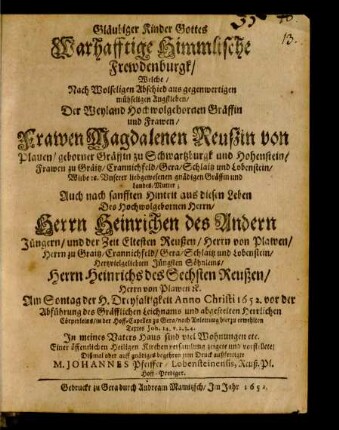 13.
Gläubiger Kinder Gottes
Warhafftige Himmlische
Frewdenburgk/
Welche/
Nach Wolseligen Abschied aus gegenwertigen
mühseligen Angstleben/
Der Weyland Hochwolgebornen Gräffin
und Frawen/
Frawen Magdalenen Reußin von
Plauen/ geborner Gräffin zu Schwartzburgk und Hohenstein/
Frawen zu Gräitz/ Crannichfeld/ Gera/ Schlaitz und Lobenstein/
Witbe ꝛc. Unserer liebgewesenen gnätigen Gräffin und
Landes-Mutter;
Auch nach sanfften Hintrit aus diesen Leben
Des Hochwolgebornen Herrn/
Herrn Heinrichen des Andern
Jüngern/ und der Zeit Eltesten Reussen/ Herrn von Plawen/
Herrn zu Graitz/ Crannichfeld/ Gera/ Schlaitz und Lobenstein/
Hertzvielgeliebten Jüngsten Söhnleins/
Herrn Heinrichs des Sechsten Reußen/
Herrn von Plawen ꝛc.
Am Sontag der H. Dreyfaltigkeit Anno Christi 1652. vor der
Abführung des Gräfflichen Leichnams und abgeseelten Herrlichen
Cörperleins/ in der Hoff-Capellen zu Gera/ nach Anleitung hierzu erwehlten
Textes Joh. 14. v. 1.2.4.
In meines Vaters Haus sind viel Wohnungen etc.
Einer öffentlichen Heiligen Kirchenversamlung zeigete und vorstellete;
Dißmal aber auff gnädiges begehren zum Druck außfertigte
M. JOHANNES Pfeiffer/ Lobensteinensis, Reuß. Pl.
Hoff-Prediger.
Gedruckt zu Gera durch Andream Mamitzsch/ Im Jahr 1652.